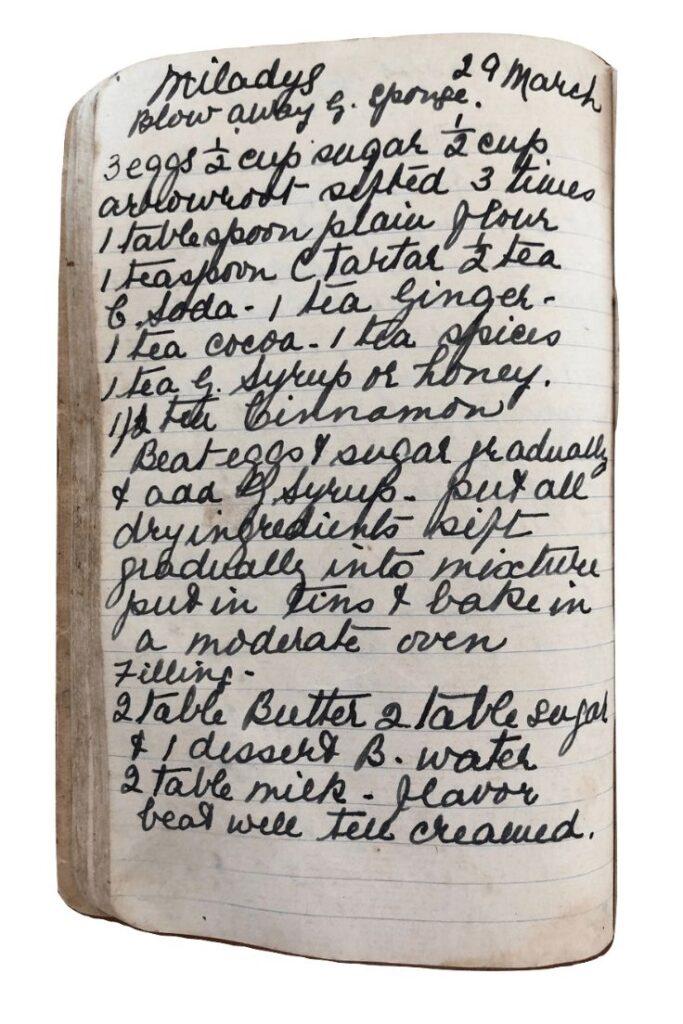 Miladys 29 March
Blow away G. Sponge.
3 eggs ½ cup sugar ½ cup
arrowroot sifted 3 times
1 tablespoon plain flour
1 teaspoon C Tartar ½ tea
C. Soda - 1 tea Ginger -
1 tea cocoa - 1 tea spices
1 tea G. Syrup or honey.
1/2 tea Cinnamon
Beat eggs & sugar gradually
& add G. Syrup - put all
dry ingredients sift
gradually into mixture
put in tins & bake in
a moderate oven
Filling -
2 table Butter 2 table sugar
& 1 dessert B. water
2 table milk - flavor
beat well till creamed.